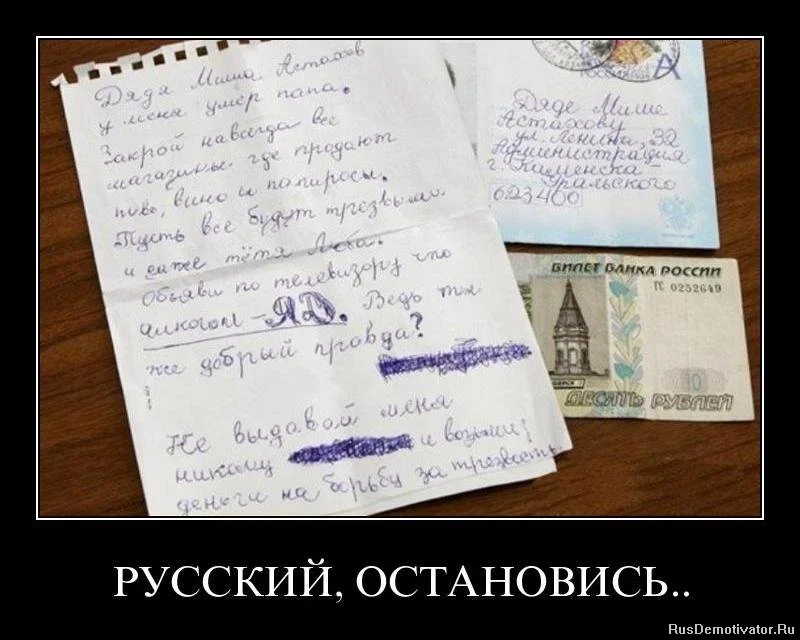 Дядя Миша Астахов
у меня умер папа.
Закрой навсегда все
магазины где продают
пиво, вино и папиросы.
Пусть все будут трезвыми.
и даже тётя Люба.
Объяви по телевизору что
алкоголь – ЯД. Ведь ты
же добрый правда?
Не выдавай меня
никому и возьми
деньги на борьбу за трезвость
А
Дяде Мише
Астахову
ул. Ленина, 32
Администрация
г. Каменска-
Уральского
623400
БИЛЕТ БАНКА РОССИИ
0252649
10
ДЕСЯТЬ РУБЛЕЙ
РУССКИЙ, ОСТАНОВИСЬ..
RusDemotivator.Ru